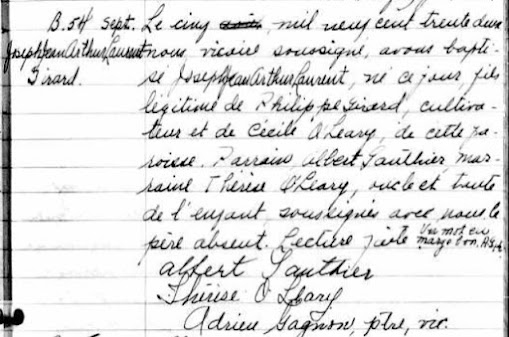 B. 54 Sept. Le cinq août, mil neuf cent trente deux
Joseph Jean Arthur Laurent nous, vicaire soussigné, avons bapti-
Girard. sé Joseph Jean Arthur Laurent, né ce jour, fils
légitime de Philippe Girard, cultiva-
teur et de Cécile O'Leary, de cette pa-
roisse. Parrain, Albert Gauthier, mar-
raine Thérèse O'Leary, oncle et tante
de l'enfant soussignés avec nous le
père absent. Lecture faite Un mot en
marge bon. A.G. ptr.
Albert Gauthier
Thérèse O'Leary
Adrien Gagnon, ptre, vic.